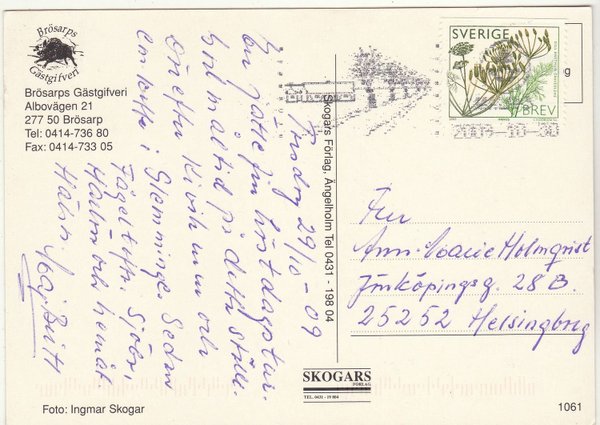 Brösarps
Gästgifveri
Brösarps Gästgifveri
Albovägen 21
277 50 Brösarp
Tel: 0414-736 80
Fax: 0414-733 05
Torsdag 29/10-09
En jättefin höstdagstur.
God måltid på detta ställe.
Österlen Kivik mm och
en loppis i Glemminge. Sedan
Fågeltofta, Sjöbo,
Hörby och hemåt.
Hälsn. Maj Britt
Skogars Förlag, Ängelholm Tel 0431 - 198 04
SVERIGE
BREV
2009-10-30
Fru
Ann-Marie Holmqvist
Jönköpingsg. 28 B.
25252 Helsingborg
SKOGARS
FÖRLAG
TEL. 0431 - 19 804
Foto: Ingmar Skogar
1061